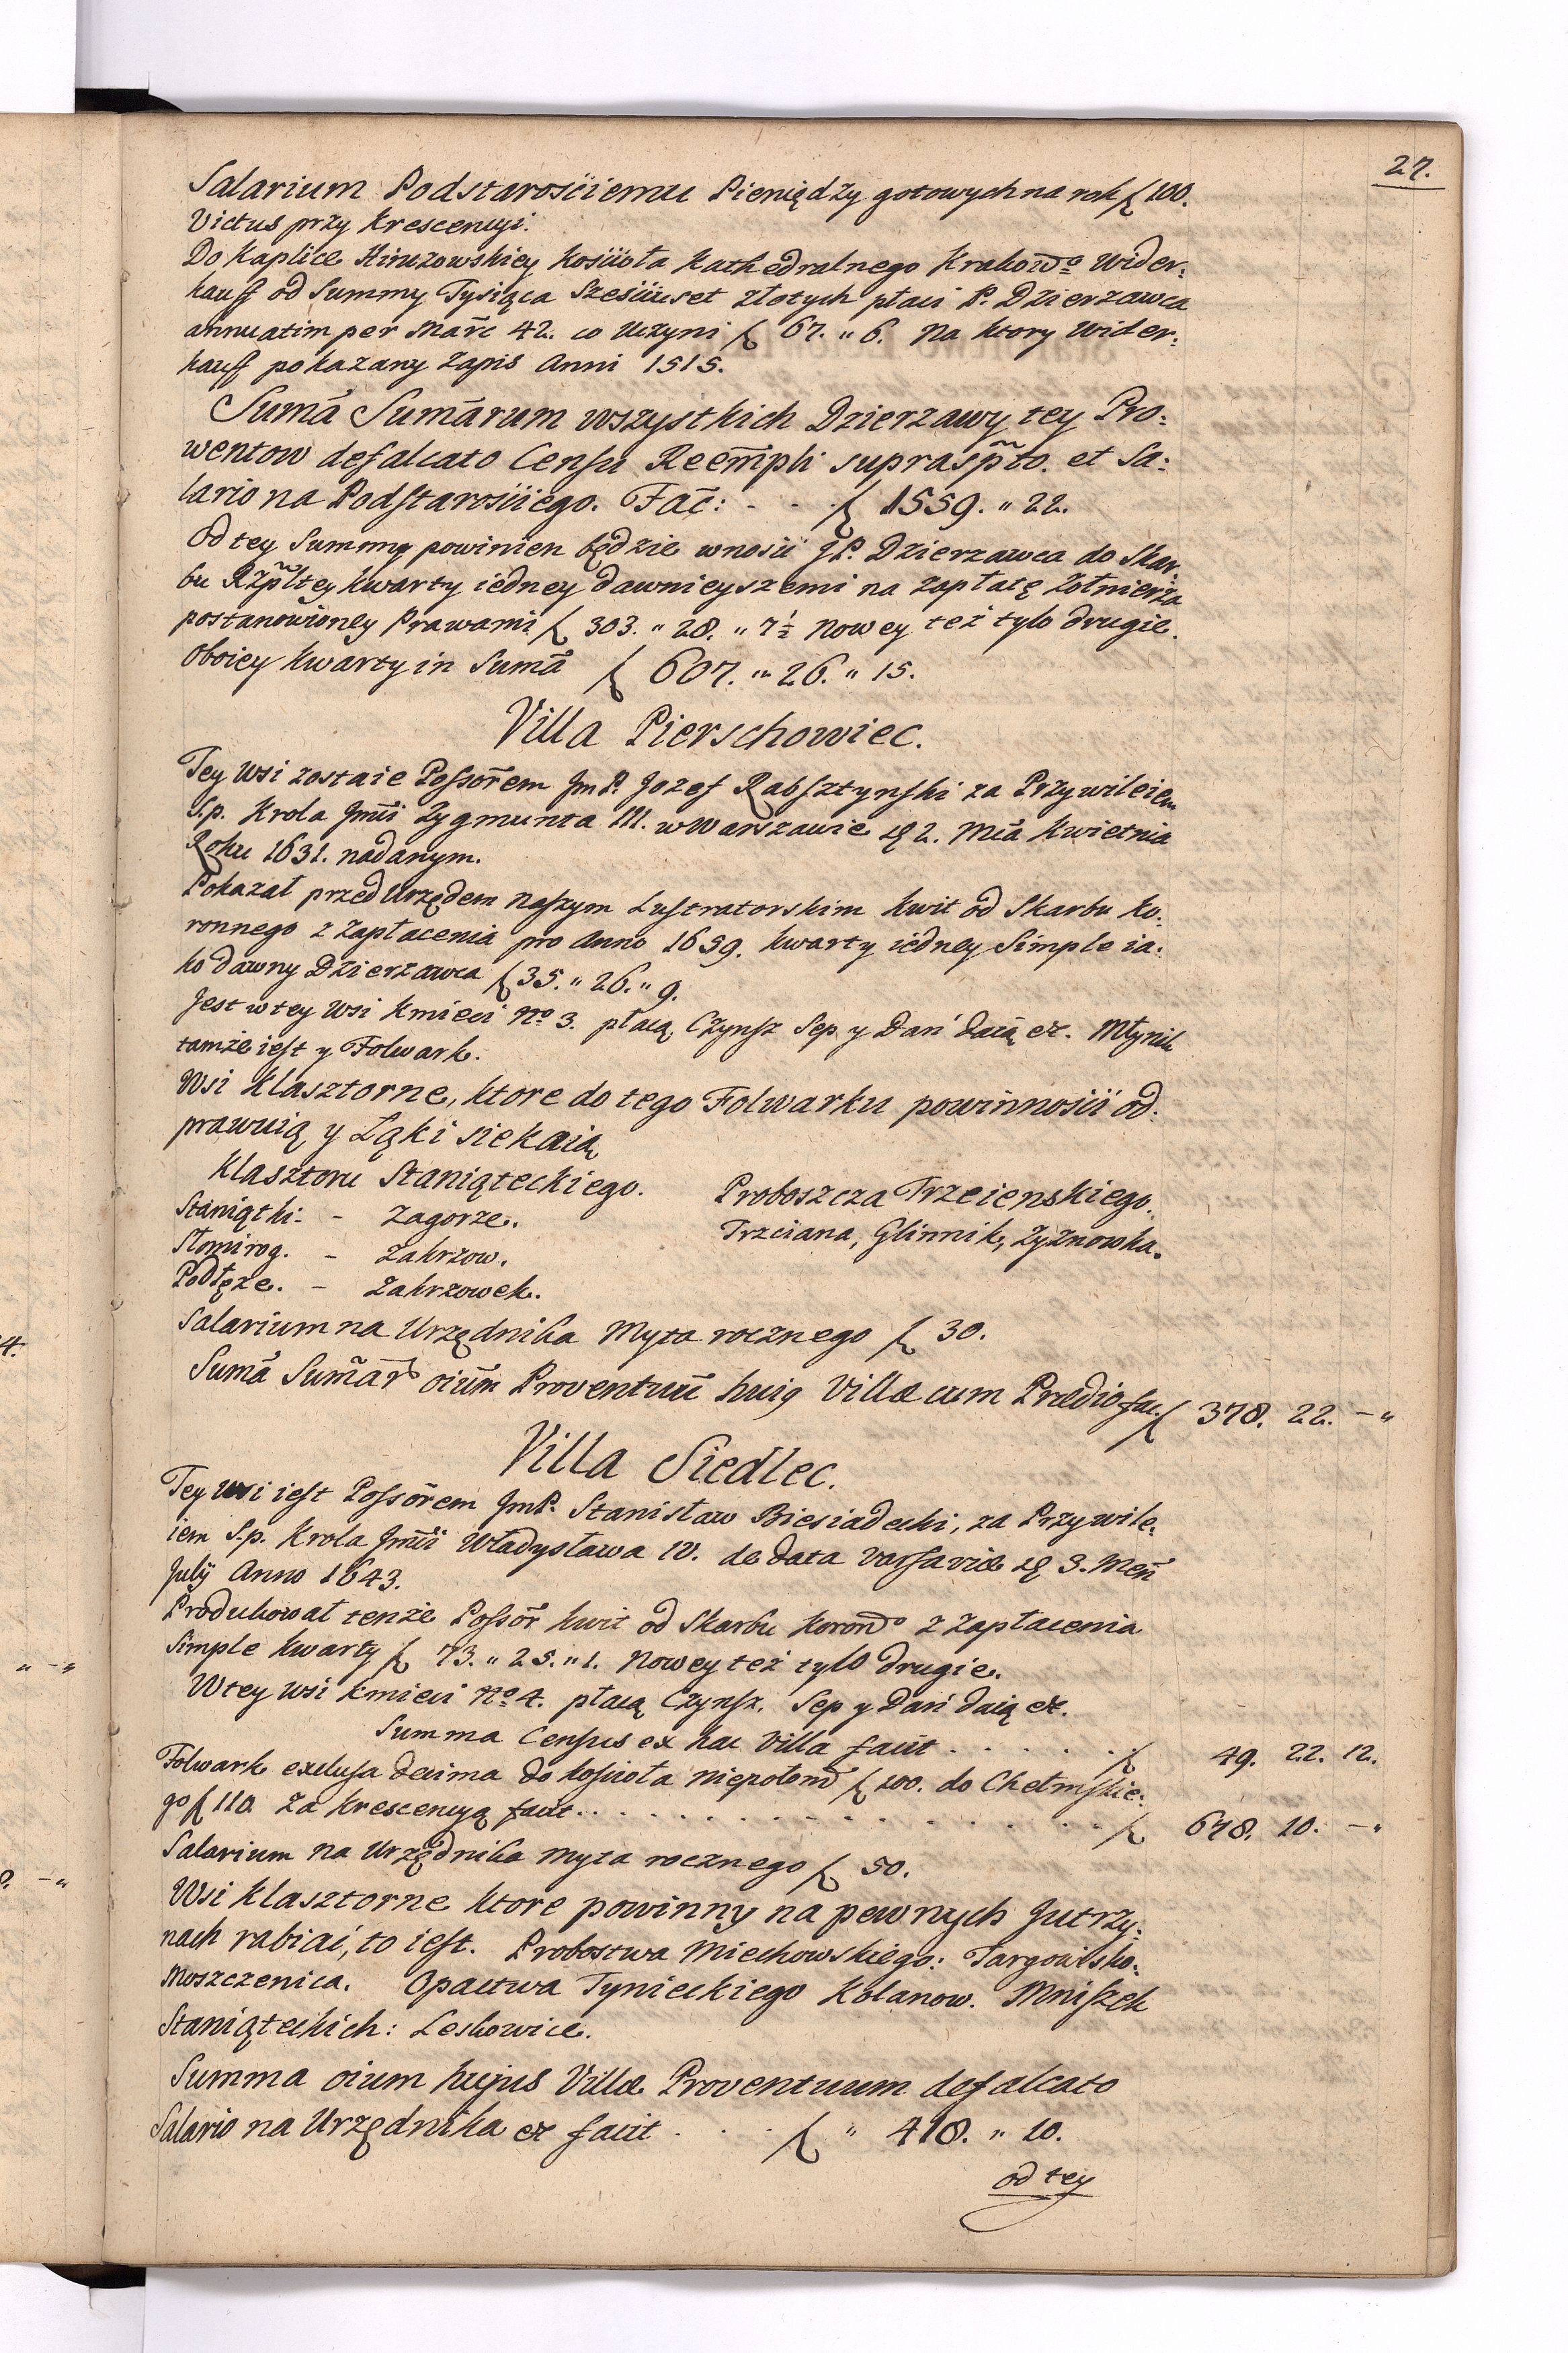 27.
Salarium Podstarosciemu Pieniędzy gotowych na rok ƒ 100.
Victus przy Krescencyi.
Do Kaplice Hinczowskiey Koscioła Kathedralnego Krakowᵒ Wider:
kauff od Summy Tysiąca Szesciuset złotych płaci P. Dzierzawca
annuatim per Marc 42. co Uczyni ƒ 67. " 6. Na ktory Wider:
kauff pokazany Zapis Anni 1515.
Suma Sumarum wszystkich Dzierzawy tey Pro:
wentow defalcato Censu Reempli supraspto. et Sa:
lario na Podstarosciego. Fac: - - - ƒ 1559. " 22.
Od tey Summy powinien będzie wnosić JP. Dzierzawca do Skar
bu Rzpltey kwarty iedney dawnieyszemi na zapłatę Zołnierza
postanowioney Prawami ƒ 303. " 28. " 7½ Nowey też tylo drugie.
Oboiey kwarty in Suma ƒ 607. " 26. " 15.
Villa Pierschowiec.
Tey Wsi zostaie Possorem JmP. Jozef Rabsztynski za Przywileiem
S.p. Krola Jmci Zygmunta III. w Warszawie d 2. Mca Kwietnia
Roku 1631. nadanym.
Pokazał przed Urzędem Naszym Lustratorskim kwit od Skarbu Ko:
ronnego z zapłacenia pro Anno 1659. kwarty iedney Simple ia:
ko dawny Dzierzawca ƒ 35. " 26. " 9.
Jest w tey Wsi Kmieci Nᵒ 3. płacą Czynsz Sep y Dań daią etc. Młynik
tamże iest y Folwark.
Wsi Klasztorne, ktore do tego Folwarku powinnosci od:
prawuią y Łąki siekaią
Klasztoru Staniąteckiego. Proboszcza Trzcienskiego.
Staniątki. - Zagorze. Trzciana, Glinnik, Zyznowka.
Słomirog. - Zakrzow.
Podłęze. - Zakrzowek.
Salarium na Urzędnika Myta rocznego ƒ 30.
Suma Sumar oium Proventuu huig Villæ cum Prædio fac. ƒ 378. 22. - "
Villa Siedlec.
Tey wsi iest Possorem JmP. Stanisław Biesiadecki, za Przywile:
iem S.p. Krola Jmci Władysława IV. de data Varsaviæ d 3. Men
July Anno 1643.
Produkował tenże Possor kwit od Skarbu Koronᵒ z zapłacenia
Simple kwarty ƒ 73. " 25. " 1. Nowey też tylo drugie.
W tey wsi kmieci Nᵒ 4. płacą Czynsz, Sep y Dań daią etc.
Summa Census ex hac Villa facit . . . . . . ƒ 49. 22. 12.
Folwark exclusa decima do kosciola Niepołom ƒ 100. do Chełmskie:
go ƒ 110. za Krescencyą facit . . . . . . . . . . ƒ 678. 10. - "
Salarium na Urzędnika myta rocznego ƒ 50.
Wsi Klasztorne ktore powinny na pewnych Jutrzy:
nach rabiać, to iest. Probostwa Miechowskiego: Targowisko.
Moszczenica. Opactwa Tynieckiego Kolanow. Mniszek
Staniąteckich: Leskowice.
Summa oium hujus Villæ Proventuum defalcato
Salario na Urzędnika etc facit . . . . ƒ " 418. " 10.
od tey